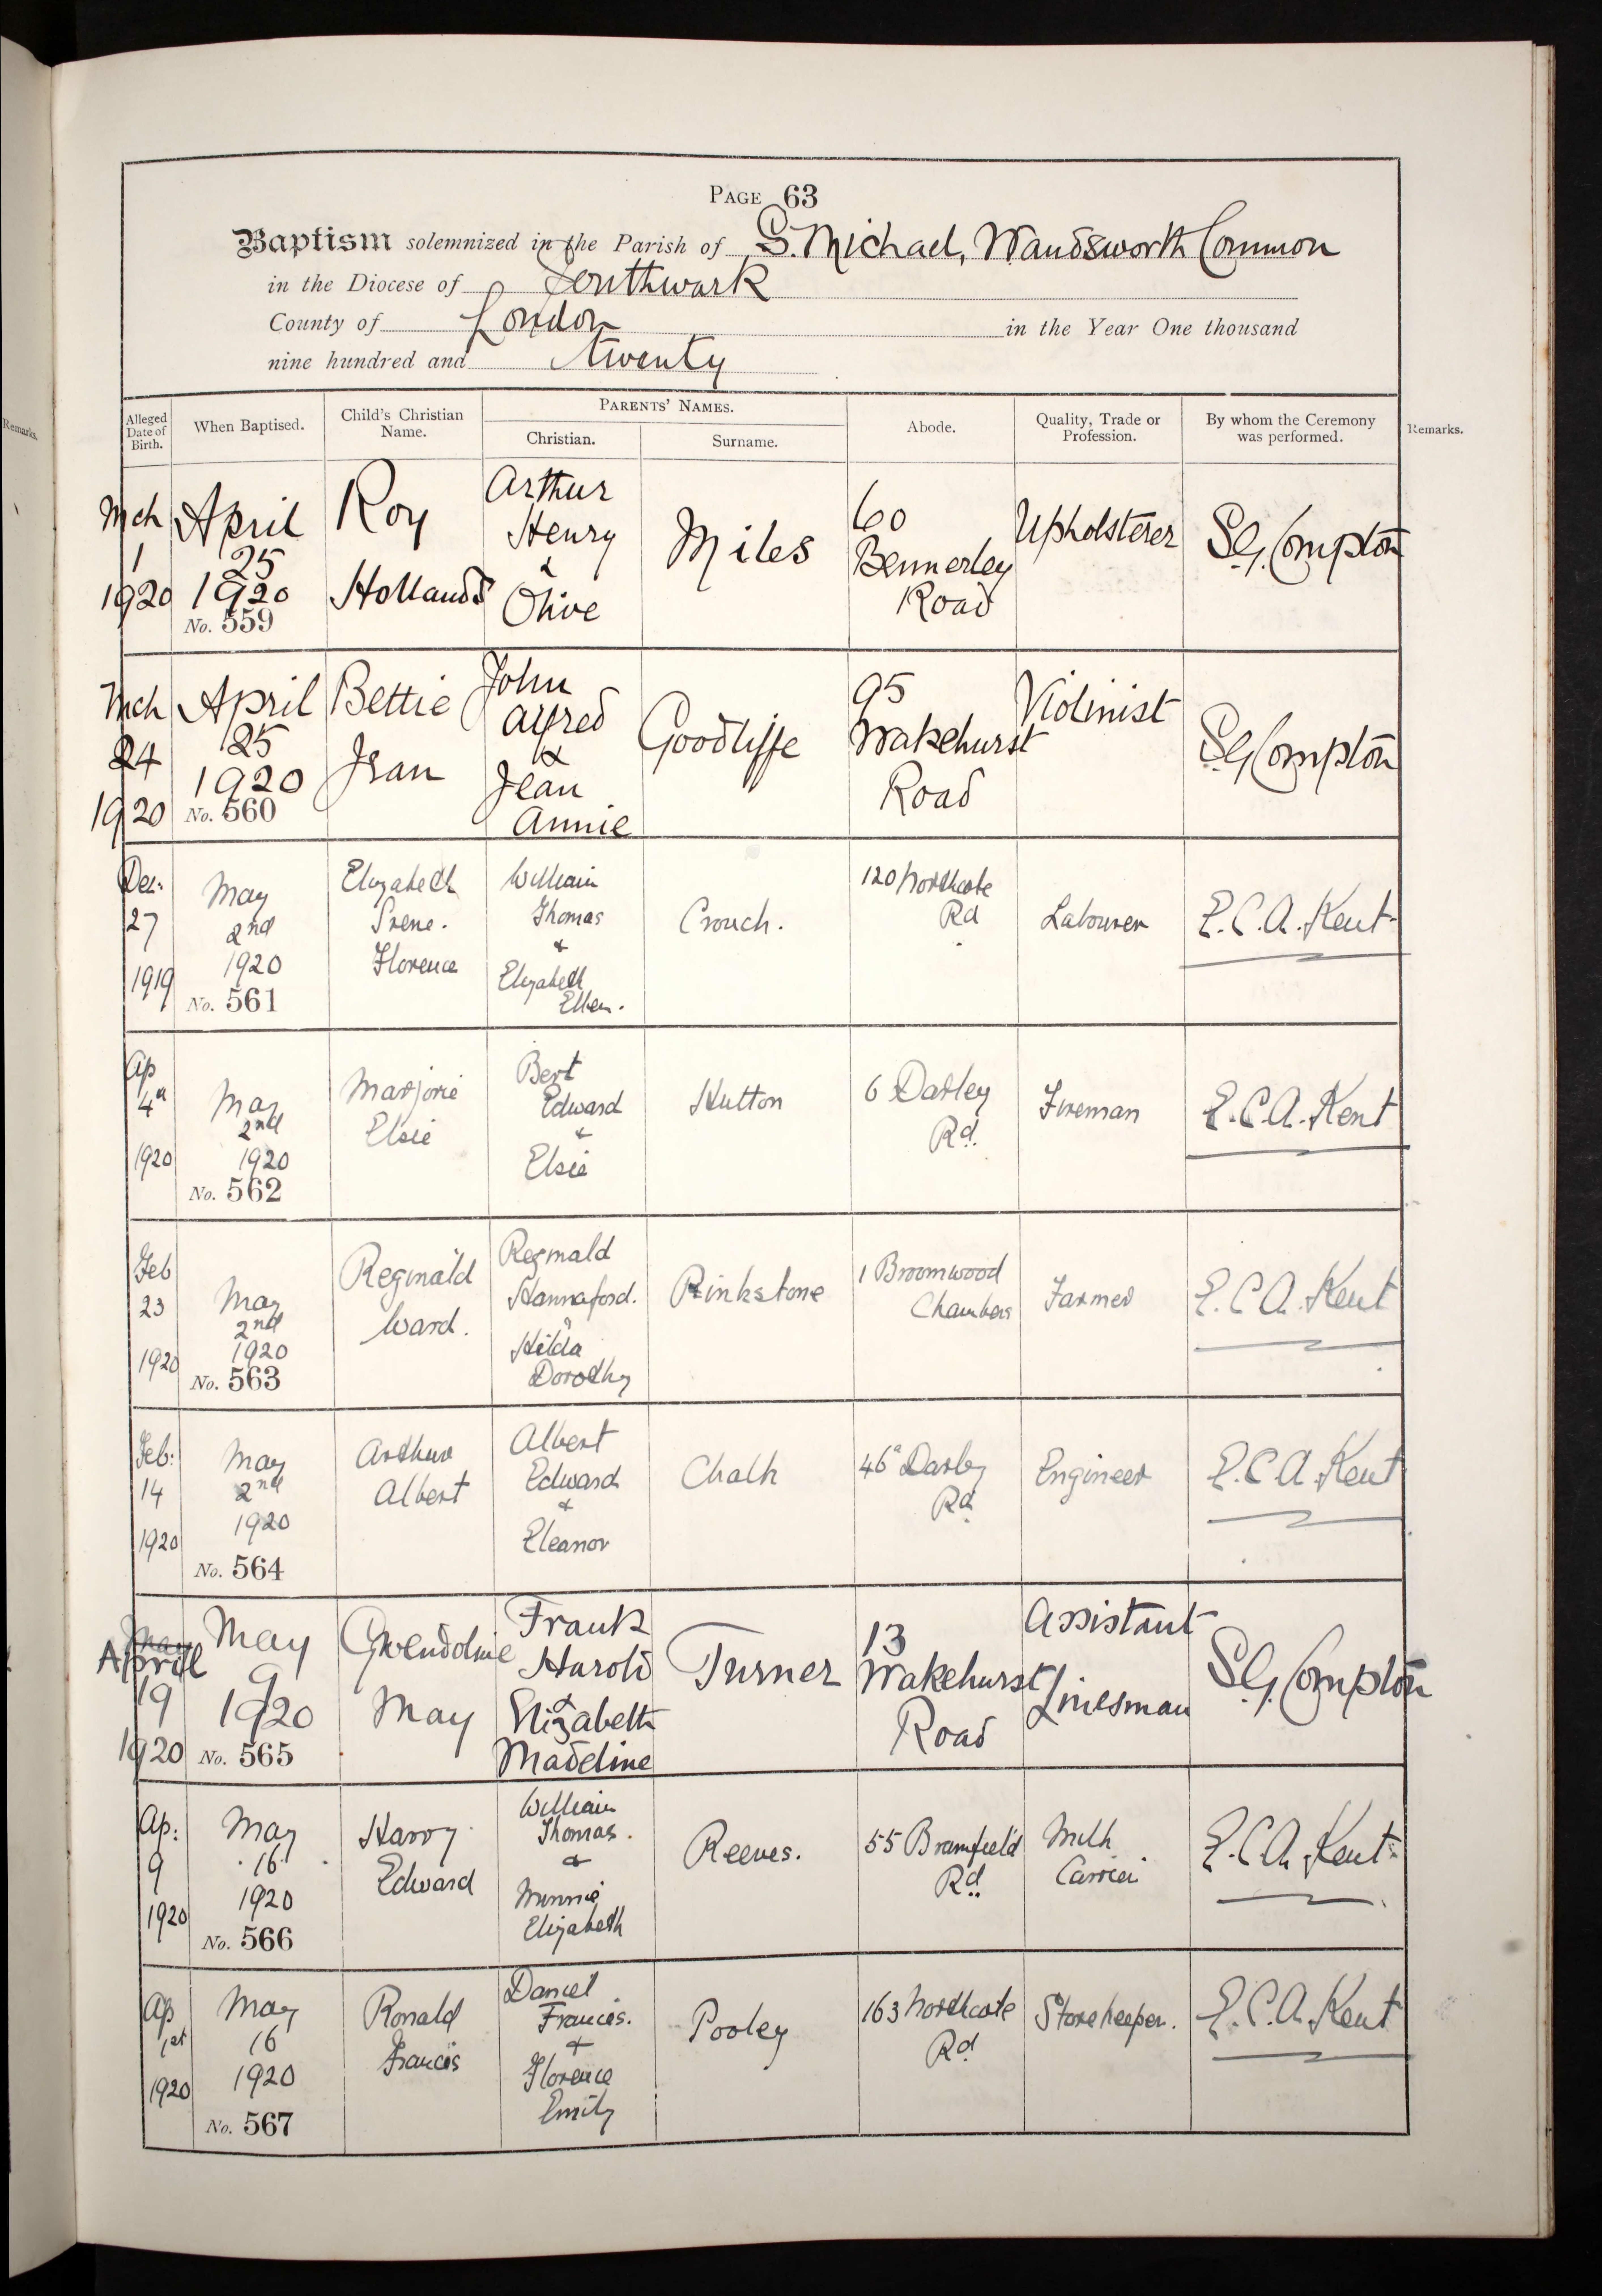 PAGE 63
Baptism solemnized in the Parish of S. Michael, Wandsworth Common
in the Diocese of Southwark
County of London in the Year One thousand
nine hundred and twenty
Alleged Date of Birth.
When Baptised.
Child's Christian Name.
PARENTS' NAMES.
Christian.
Surname.
Abode.
Quality, Trade or Profession.
By whom the Ceremony was performed.
Remarks.
Remarks.
Mch
1
1920
April
25
1920
No. 559
Roy
Hollands
Arthur
Henry
&
Olive
Miles
60
Bennerley
Road
Upholsterer
S.G. Compton
Mch
24
1920
April
25
1920
No. 560
Bettie
Jean
John
Alfred
&
Jean
Annie
Goodliffe
95
Wakehurst
Road
Violinist
S.G. Compton
Dec:
27
1919
May
2nd
1920
No. 561
Elizabeth
Irene.
Florence
William
Thomas
&
Elizabeth
Ellen.
Crouch.
120 Northcote
Rd
Labourer
E.C.A. Kent
Ap
4th
1920
May
2nd
1920
No. 562
Marjorie
Elsie
Bert
Edward
&
Elsie
Hutton
6 Darley
Rd.
Fireman
E.C.A. Kent
Feb
23
1920
May
2nd
1920
No. 563
Reginald
Ward.
Reginald
Hannaford.
&
Hilda
Dorothy
Pinkstone
1 Broomwood
Chambers
Farmer
E.C.A. Kent
Feb:
14
1920
May
2nd
1920
No. 564
Arthur
Albert
Albert
Edward
&
Eleanor
Chalk
46a Darley
Rd
Engineer
E.C.A. Kent
May
April
19
1920
May
9
1920
No. 565
Gwendoline
May
Frank
Harold
&
Elizabeth
Madeline
Turner
13
Wakehurst
Road
Assistant
Linesman
S.G. Compton
Ap:
9
1920
May
16
1920
No. 566
Harry
Edward
William
Thomas.
&
Minnie
Elizabeth
Reeves.
55 Bramfield
Rd.
Milk
Carrier
E.C.A. Kent
Ap
1st
1920
May
16
1920
No. 567
Ronald
Francis
Daniel
Francis.
&
Florence
Emily
Pooley
163 Northcote
Rd
Storekeeper.
E.C.A. Kent